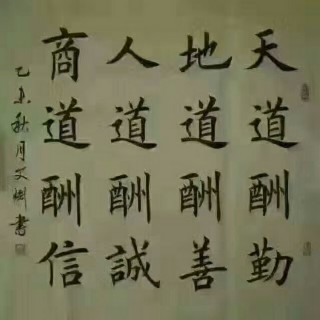 天道酬勤
地道酬善
人道酬誠
商道酬信
乙未秋月文開書